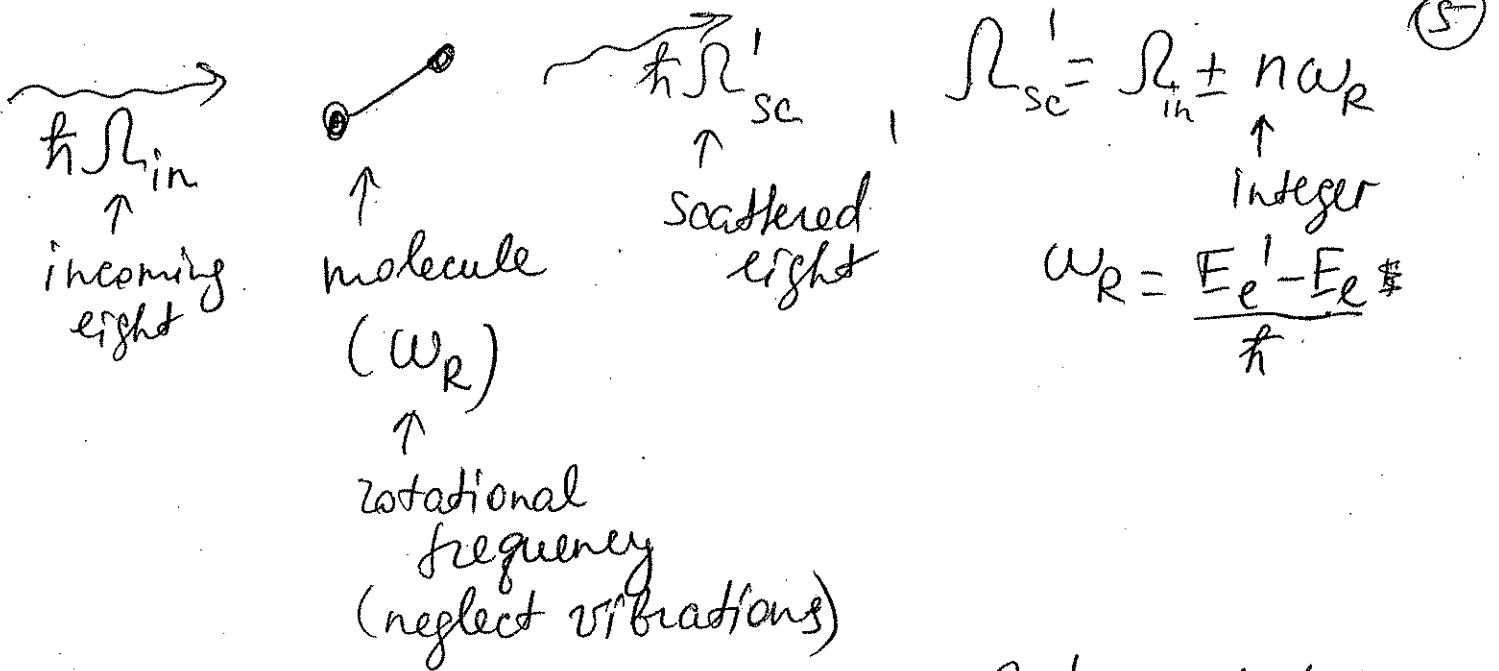 (5)
ħΩ_in
↑
incoming
light
molecule
(ω_R)
↑
rotational
frequency
(neglect vibrations)
ħΩ'_sc ,
↑
scattered
light
Ω'_sc = Ω_in ± nω_R
↑
integer
ω_R = (E_e' - E_e)/ħ